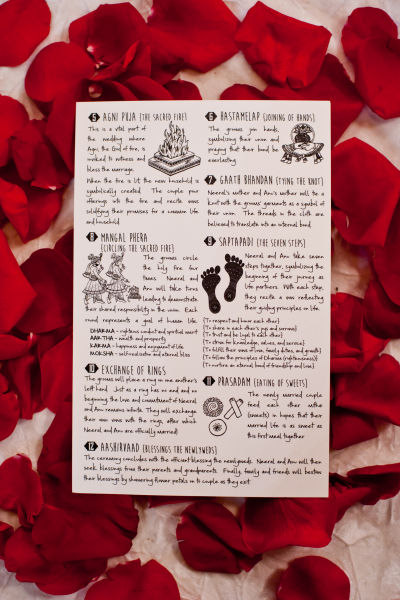 5 AGNI PUJA (THE SACRED FIRE)
This is a vital part
of the wedding where
Agni, the God of fire, is
invoked to witness and
bless the marriage.
When the fire is lit, the new household is
symbolically created. The couple pour
offerings into the fire and recite vows
solidifying their promises for a common life
and household.
6 HASTAMELAP (JOINING OF HANDS)
The grooms join hands,
symbolizing their union and
praying that their bond be
everlasting.
7 GAATH BHANDAN (TYING THE KNOT)
Neeral's mother and Anu's mother will tie a
knot with the grooms' garments as a symbol of
their union. The threads in the cloth are
believed to translate into an internal bond.
8 MANGAL PHERA
(CIRCLING THE SACRED FIRE)
The grooms circle
the holy fire four
times. Neeral and
will take turns
leading to demonstrate
their shared responsibility in the union. Each
round represents a goal of human life:
DHARMA - righteous conduct and spiritual merit
AARTHA - wealth and prosperity
KARMA - happiness and enjoyment of life
MOKSHA - self-realization and eternal bliss
9 SAPTAPADI (THE SEVEN STEPS)
Neeral and take seven
steps together, symbolizing the
beginning of their journey as
life partners. With each step,
they recite a vow reflecting
their guiding principles in life.
(To respect and honor each other)
(To share in each other's joys and sorrows)
(To trust and be loyal to each other)
(To strive for knowledge, values, and service)
(To fulfill their vows of love, family duties, and growth)
(To follow the principles of Dharma (righteousness))
(To nurture an eternal bond of friendship and love)
10 EXCHANGE OF RINGS
The grooms will place a ring on one another's
left hand. Just as a ring has no end and no
beginning, the love and commitment of Neeral
and remains infinite. They will exchange
their own vows with the rings, after which
Neeral and are officially married!
11 PRASADAM (EATING OF SWEETS)
The newly married couple
feed each other mithai
(sweets) in hopes that their
married life is as sweet as
this first meal together.
12 AASHIRVAAD (BLESSINGS THE NEWLYWEDS)
The ceremony concludes with the officiant blessing the newlyweds. Neeral and will then
seek blessings from their parents and grandparents. Finally, family and friends will bestow
their blessings by showering flower petals on to couple as they exit.